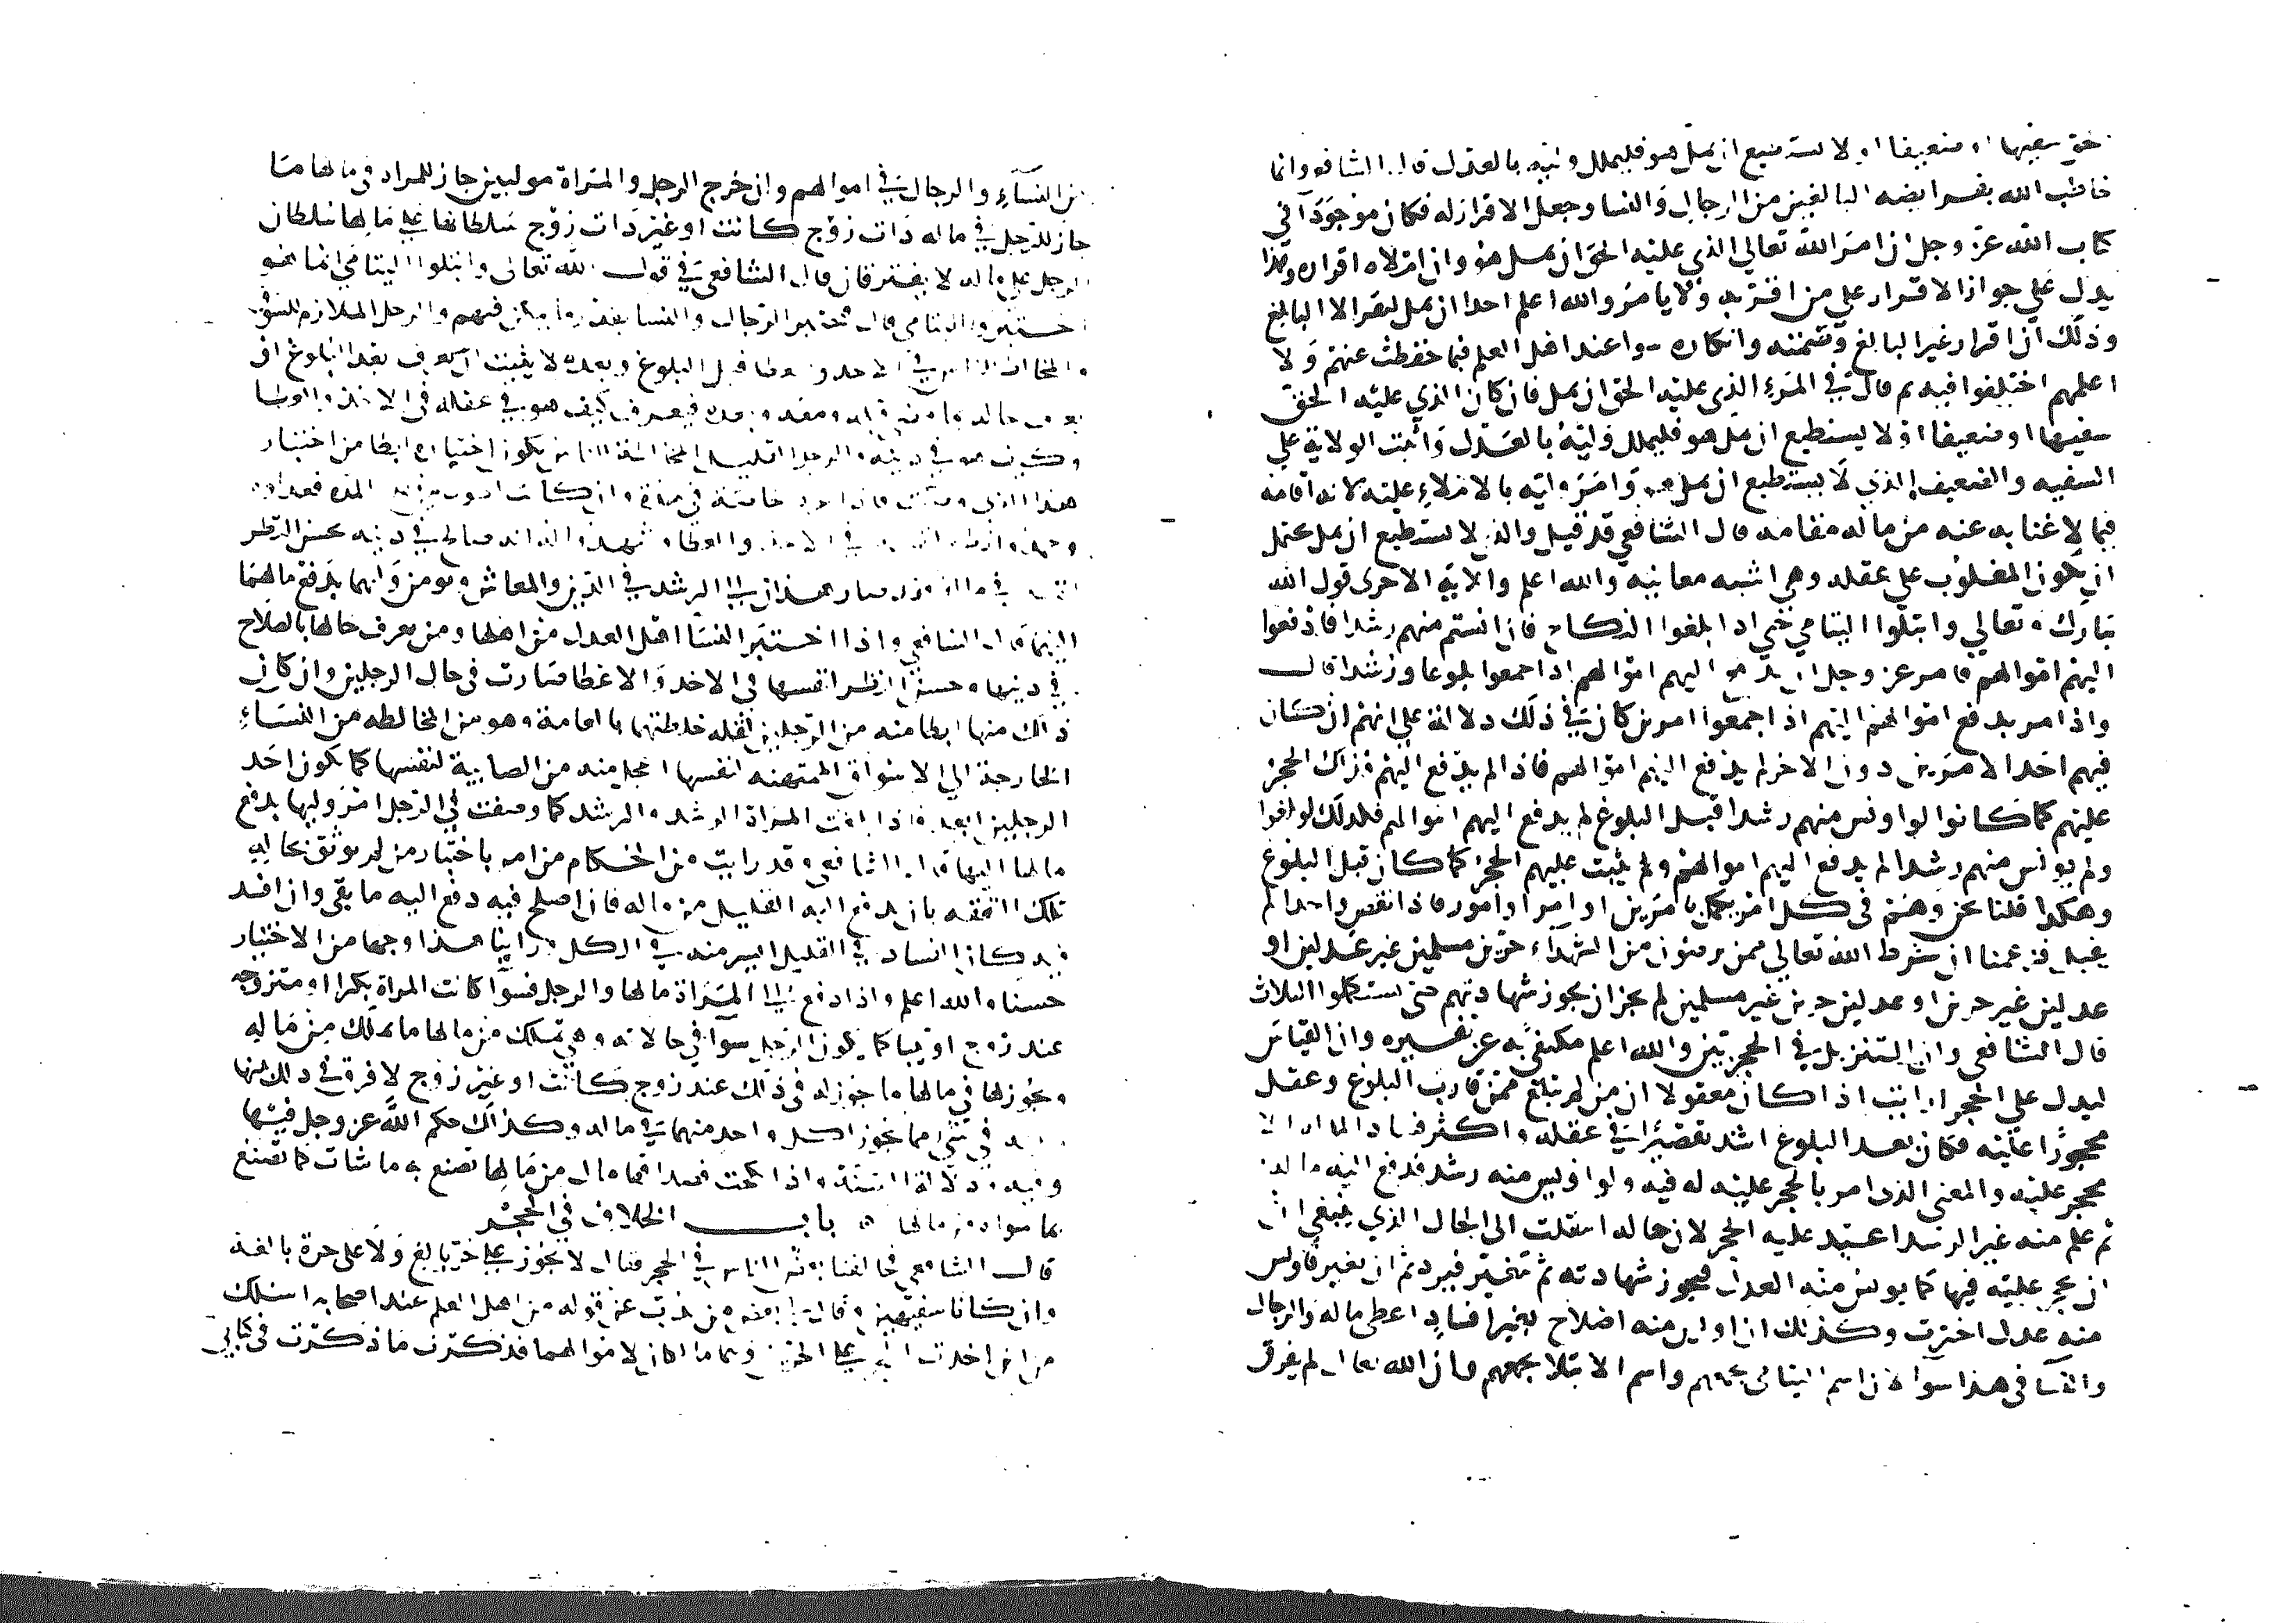 الحق سفيها او ضعيفا او لا يستطيع ان يمل هو فليملل وليه بالعدل قال الشافعي وانما
خاطب الله بفرايضه البالغين من الرجال والنسا وجعل الاقرار له فكان موجودا في
كتاب الله عز وجل ان امر الله تعالى الذي عليه الحق ان يمل هو وان املاه اقراره وهذا
يدل على جواز الاقرار على من اقر به ولا يامر والله اعلم احدا ان يمل ليقر الا البالغ
وذلك ان اقرار غير البالغ وصمته وانكاره سوا عند اهل العلم فيما حفظت عنهم ولا
اعلمهم اختلفوا فيه ثم قال في المرء الذي عليه الحق ان يمل فان كان الذي عليه الحق
سفيها او ضعيفا او لا يستطيع ان يمل هو فليملل وليه بالعدل واثبت الولاية على
السفيه والضعيف والذي لا يستطيع ان يمل هو وامر وليه بالاملاء عليه لانه اقامه
فيما لا غنا به عنه من ماله مقامه قال الشافعي قد قيل والذي لا يستطيع ان يمل يحتمل
ان يكون المغلوب على عقله وهي اشبه معانيه والله اعلم والاية الاخرى قول الله
تبارك وتعالى وابتلوا اليتامى حتى اذا بلغوا النكاح فان انستم منهم رشدا فادفعوا
اليهم اموالهم فامر عز وجل ان يدفع اليهم اموالهم اذا جمعوا بلوغا ورشدا قال
واذا امر بدفع اموالهم اليهم اذا جمعوا امرين كان في ذلك دلالة على انهم ان كان
فيهم احد الامرين دون الاخر لم يدفع اليهم اموالهم فاذا لم يدفع اليهم فذلك الحجر
عليهم كما كانوا لو اونس منهم رشدا قبل البلوغ لم يدفع اليهم اموالهم فلذلك لو بلغوا
ولم يونس منهم رشدا لم يدفع اليهم اموالهم ولم يثبت عليهم الحجر كما كان قبل البلوغ
وهكذا قلنا نحن وهم في كل امر يكمل بامرين او امرا وامور فاذا نقص واحدا لم
يقبل فزعمنا ان شرط الله تعالى ممن ترضون من الشهداء حرين مسلمين غير عدلين او
عدلين غير حرين او عدلين حرين غير مسلمين لم يجز ان يجوز شهادتهم حتى يستكملوا الثلاث
قال الشافعي وان التنزيل في الحجر بين والله اعلم مكتفى به عن تفسيره وان القياس
ليدل على الحجر ارايت اذا كان معقولا ان من لم تبلغ ممن قارب البلوغ وعقل
محجورا عليه فكان بعد البلوغ اشد تقصيرا في عقله واكثر فسادا لماله الا
يحجر عليه والمعنى الذي امر بالحجر عليه له فيه ولو اونس منه رشد فدفع اليه ماله
ثم علم منه غير الرشد اعيد عليه الحجر لان حاله انتقلت الى الحال الذي ينبغي ان
ان يحجر عليه فيها كما يونس منه العدل فيجوز شهادته ثم تتغير فيرد ثم ان تغير فاونس
منه عدل اجيزت وكذلك ان اونس منه اصلاح بعد افساد اعطى ماله والرجال
والنسا في هذا سوا لان اسم اليتامى يجمعهم واسم الابتلا يجمعهم وان الله تعالى لم يفرق
بين النساء والرجال في اموالهم وان خرج الرجل والمراة موليين جاز للمراة في مالها ما
جاز للرجل في ماله ذات زوج كانت او غير ذات زوج سلطانها على مالها سلطان
الرجل على ماله لا يفترقان قال الشافعي في قول الله تعالى وابتلوا اليتامى انما هو
اختبروا اليتامى قال فتختبر الرجال والنسا بقدر ما يمكن فيهم والرجل الملازم للسوق
والمخالط الناس في الاخذ والعطا قبل البلوغ وبعده لا يثبت ان يعرف بعد البلوغ ان
يعرف حاله بما قبله ومعه وبعده فيعرف كيف هو في عقله في الاخذ والعطا
وكيف هو في دينه والرجل القليل المخالطة الناس يكون اختباره ابطا من اختبار
هذا الذي وصفت فاذا عرف خاصته في مدة وان كانت اطول من هذه المدة فعدلوه
وحمدوا نظره لنفسه في الاخذ والعطاء وشهدوا له انه صالح في دينه حسن النظر
لنفسه في ماله فقد صار هذان الى الرشد في الدين والمعاش ويومر وليهما بدفع مالهما
اليهما قال الشافعي واذا اختبر النسا اهل العدل من اهلها ومن يعرف حالها بالصلاح
في دينها وحسن النظر لنفسها في الاخذ والاعطا صارت في حال الرجلين وان كان
ذلك منها ابطا منه من الرجلين لقلة خلطتها بالعامة وهو من المخالطه من النساء
الخارجة الى الاسواق الممتهنه لنفسها اعجل منه من الصاينة لنفسها كما يكون احد
الرجلين ابعد فاذا بلغت المراة الرشد والرشد كما وصفت في الرجل امر وليها بدفع
مالها اليها قال الشافعي وقد رايت من الحكام من امر باختبار من لم يوثق بحاله
تلك الثقه بان يدفع اليه القليل من ماله فان اصلح فيه دفع اليه ما بقي وان افسد
فيه كان الفساد في القليل ايسر منه في الكل وراينا هذا وجها من الاختبار
حسنا والله اعلم واذا دفع الى المراة مالها والرجل فسوا كانت المراة بكرا او متزوجه
عند زوج او ثيبا كما يكون الرجل سوا في حالاته وهي تملك من مالها ما يملك من ماله
ويجوز لها في مالها ما جوز له في ذلك عند زوج كانت او غير زوج لا فرق في ذلك بينها
وبينه في شي مما يجوز لكل واحد منهما في ماله وكذلك حكم الله عز وجل فيها
وفيه ودلالة السنة واذا نكحت فصداقها مال من مالها تصنع به ما شات كما تصنع
بما سواه من مالها باب الخلاف في الحجر
قال الشافعي فخالفنا بعض الناس في الحجر فقال لا يجوز على حر بالغ ولا على حرة بالغة
وان كانا سفيهين وقال لي بعض من يذب عن قوله من اهل العلم عند اصحابه اسلك
من اين اخذت الحجر على الحرين وهما مالكان لاموالهما فذكرت ما ذكرت في كتابي